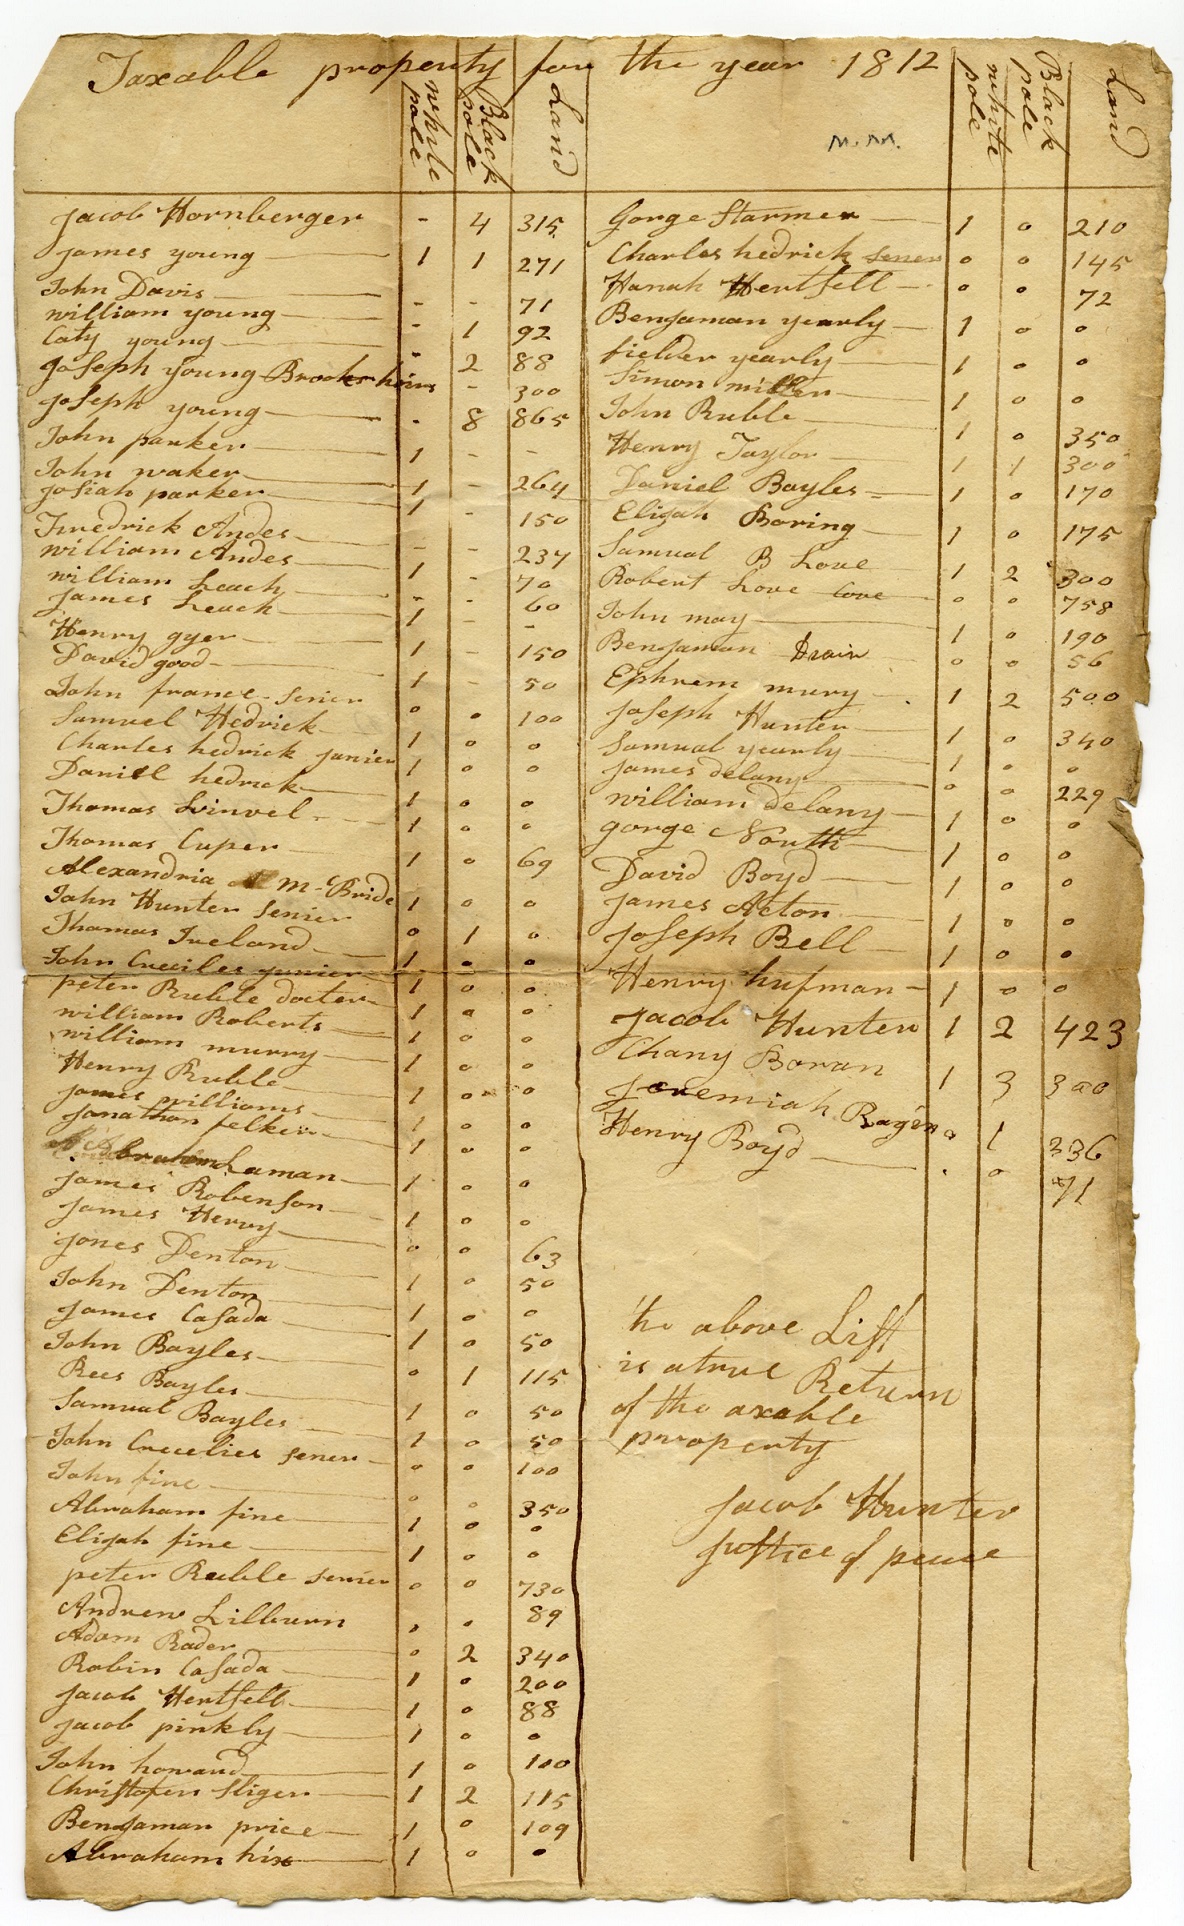 Taxable property for the year 1812
white pole Black pole Land
white pole Black pole Land
M.M.
Jacob Hornberger - 4 315
James young 1 1 271
John Davis - - 71
william young - 1 92
Caty young - 2 88
Joseph young Brooks heirs - 300
Joseph young - 8 865
John parker 1 - -
John waker 1 - 264
Josiah parker 1 - 150
Fredrick Andes - - 237
william Andes 1 - 70
william Leach - - 60
James Leach 1 - -
Henry gyer 1 - 150
David good 1 - 50
John france senier 0 0 100
Samuel Hedrick 1 0 0
Charles hedrick junier 1 0 0
Daniel hedrick 1 0 0
Thomas Swinvel 1 0 0
Thomas Cuper 1 0 69
Alexandria McBride 1 0 0
John Hunter Senier 0 1 0
Thomas Ireland 1 0 0
John Creciles junier 1 0 0
peter Ruble docter 1 0 0
william Roberts 1 0 0
william murry 1 0 0
Henry Ruble 1 0 0
James williams 1 0 0
Jonathon felker 1 0 0
Abraham Laman 1 0 0
James Robenson 1 0 0
James Henry 0 0 63
Jones Denton 1 0 50
John Denton 1 0 0
James Casada 1 0 50
John Bayles 0 1 115
Rees Bayles 1 0 50
Samual Bayles 1 0 50
John Crecelies sener 0 0 100
John fine 0 0 350
Abraham fine 1 0 0
Elijah fine 1 0 0
peter Ruble senier 0 0 730
Andrew Lilburn 0 0 89
Adam Rader 0 2 340
Robin Casada 1 0 200
Jacob Hentsell 1 0 88
Jacob pinkly 1 0 0
John howard 1 0 100
Christopen Sliger 1 2 115
Benjaman price 1 0 109
Abraham hix 1 0 0
Gorge Starmer 1 0 210
Charles hedrick sener 0 0 145
Hanah Hentsell 0 0 72
Benjaman yearly 1 0 0
fielder yearly 1 0 0
Simon miller 1 0 0
John Ruble 1 0 350
Henry Taylor 1 1 300
Daniel Bayles 1 0 170
Elijah Boring 1 0 175
Samual B Love 1 2 300
Robert Love Love 0 0 758
John may 1 0 190
Benjaman Drain 0 0 56
Ephrem mury 1 2 500
Joseph Hunter 1 0 340
Samual yearly 1 0 0
James delany 0 0 229
william delany 1 0 0
gorge North 1 0 0
David Boyd 1 0 0
James Acton 1 0 0
Joseph Bell 1 0 0
Henry hufman 1 0 0
Jacob Hunter 1 2 423
Chany Boran 1 3 300
Jeremiah Ragen 0 1 336
Henry Boyd 0 71
the above List
is a true Return
of the axable
property
Jacob Hunter
Justice of peace